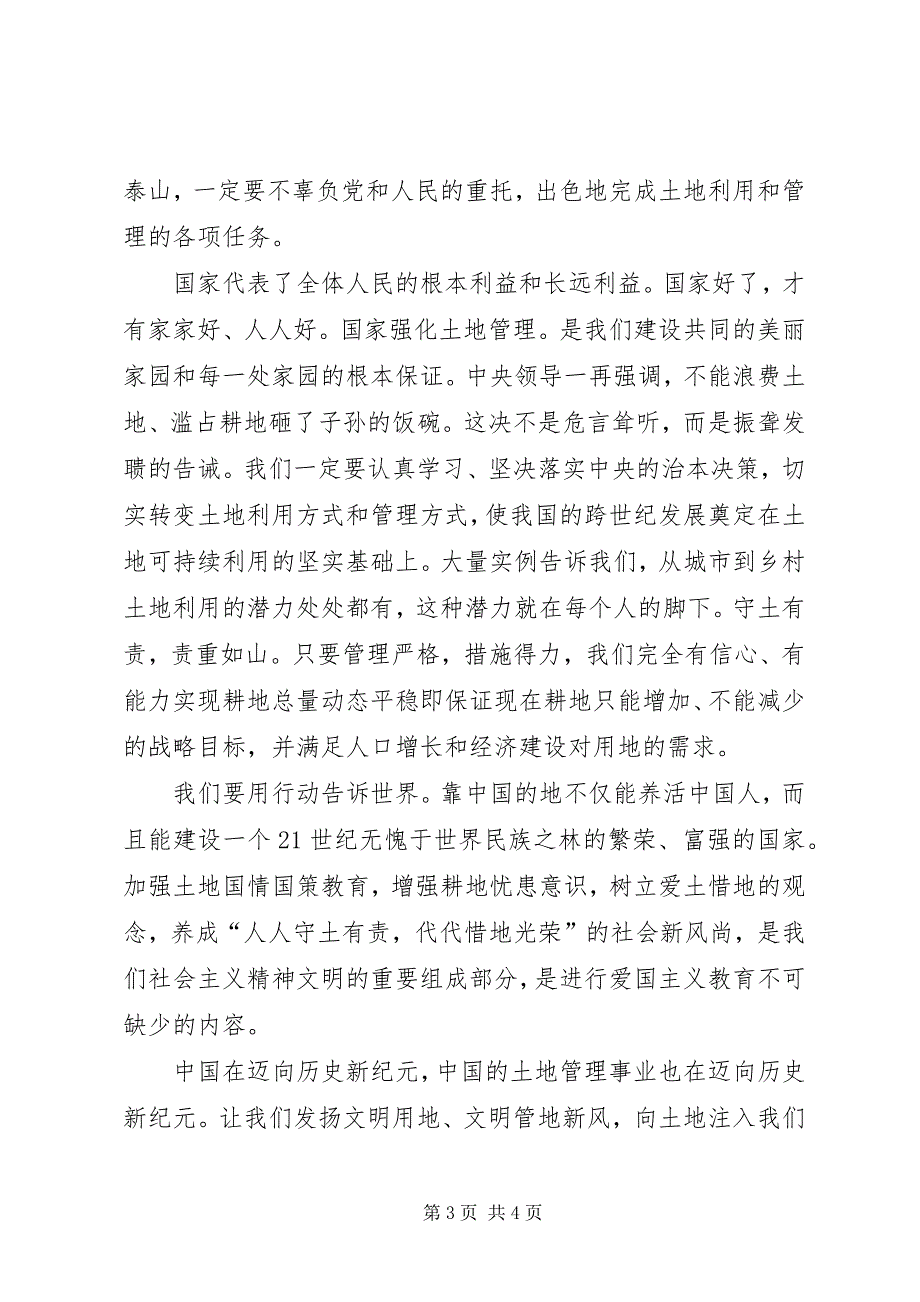 泰山，一定要不辜负党和人民的重托，出色地完成土地利用和管
理的各项任务。
国家代表了全体人民的根本利益和长远利益。国家好了，才
有家家好、人人好。国家强化土地管理。是我们建设共同的美丽
家园和每一处家园的根本保证。中央领导一再强调，不能浪费土
地、滥占耕地砸了子孙的饭碗。这决不是危言耸听，而是振聋发
聩的告诫。我们一定要认真学习、坚决落实中央的治本决策，切
实转变土地利用方式和管理方式，使我国的跨世纪发展奠定在土
地可持续利用的坚实基础上。大量实例告诉我们，从城市到乡村
土地利用的潜力处处都有，这种潜力就在每个人的脚下。守土有
责，责重如山。只要管理严格，措施得力，我们完全有信心、有
能力实现耕地总量动态平稳即保证现在耕地只能增加、不能减少
的战略目标，并满足人口增长和经济建设对用地的需求。
我们要用行动告诉世界。靠中国的地不仅能养活中国人，而
且能建设一个 21 世纪无愧于世界民族之林的繁荣、富强的国家。
加强土地国情国策教育，增强耕地忧患意识，树立爱土惜地的观
念，养成“人人守土有责，代代惜地光荣”的社会新风尚，是我
们社会主义精神文明的重要组成部分，是进行爱国主义教育不可
缺少的内容。
中国在迈向历史新纪元，中国的土地管理事业也在迈向历史
新纪元。让我们发扬文明用地、文明管地新风，向土地注入我们
第 3 页 共 4 页